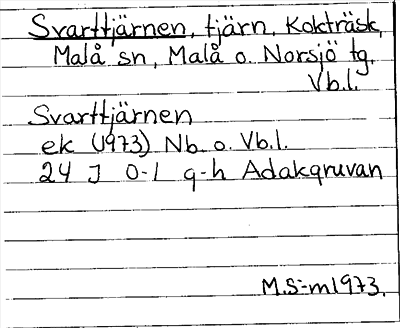 Svarttjärnen, tjärn, Kokträsk,
Malå sn, Malå o. Norsjö tg,
Vb.l.
Svarttjärnen
ek (1973) Nb. o. Vb.l.
24 J 0-1 g-h Adakgruvan
M.S:-m1973.